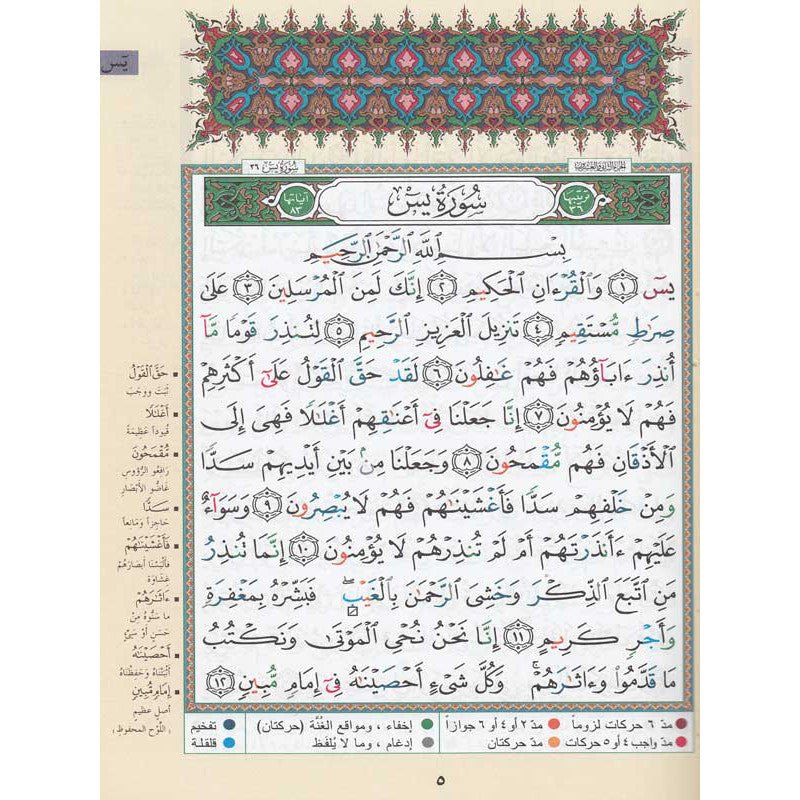 يسٓ
الجزء الثاني والعشرون
سُورَةُ يسٓ ٣٦
تَرْتِيبُهَا ٣٦
سُورَةُ يسٓ
آيَاتُهَا ٨٣
بِسْمِ ٱللَّهِ ٱلرَّحْمَٰنِ ٱلرَّحِيمِ
يسٓ ١ وَٱلْقُرْءَانِ ٱلْحَكِيمِ ٢ إِنَّكَ لَمِنَ ٱلْمُرْسَلِينَ ٣ عَلَىٰ
صِرَٰطٍ مُّسْتَقِيمٍ ٤ تَنزِيلَ ٱلْعَزِيزِ ٱلرَّحِيمِ ٥ لِتُنذِرَ قَوْمًا مَّآ
أُنذِرَ ءَابَآؤُهُمْ فَهُمْ غَٰفِلُونَ ٦ لَقَدْ حَقَّ ٱلْقَوْلُ عَلَىٰٓ أَكْثَرِهِمْ
فَهُمْ لَا يُؤْمِنُونَ ٧ إِنَّا جَعَلْنَا فِىٓ أَعْنَٰقِهِمْ أَغْلَٰلًا فَهِىَ إِلَى
ٱلْأَذْقَانِ فَهُم مُّقْمَحُونَ ٨ وَجَعَلْنَا مِنۢ بَيْنِ أَيْدِيهِمْ سَدًّا
وَمِنْ خَلْفِهِمْ سَدًّا فَأَغْشَيْنَٰهُمْ فَهُمْ لَا يُبْصِرُونَ ٩ وَسَوَآءٌ
عَلَيْهِمْ ءَأَنذَرْتَهُمْ أَمْ لَمْ تُنذِرْهُمْ لَا يُؤْمِنُونَ ١٠ إِنَّمَا تُنذِرُ
مَنِ ٱتَّبَعَ ٱلذِّكْرَ وَخَشِىَ ٱلرَّحْمَٰنَ بِٱلْغَيْبِ ۖ فَبَشِّرْهُ بِمَغْفِرَةٍ
وَأَجْرٍ كَرِيمٍ ١١ إِنَّا نَحْنُ نُحْىِ ٱلْمَوْتَىٰ وَنَكْتُبُ
مَا قَدَّمُوا۟ وَءَاثَٰرَهُمْ ۚ وَكُلَّ شَىْءٍ أَحْصَيْنَٰهُ فِىٓ إِمَامٍ مُّبِينٍ ١٢
▪ حَقَّ ٱلْقَوْلُ
ثَبَتَ وَوَجَبَ
▪ أَغْلَٰلًا
قُيُوداً عَظِيمَةً
▪ مُّقْمَحُونَ
رَافِعُو الرُّؤُوسِ
غَاضُّو الأَبْصَارِ
▪ سَدًّا
حَاجِزاً وَمَانِعاً
▪ فَأَغْشَيْنَٰهُمْ
فَأَلْبَسْنَا أَبْصَارَهُمْ
غِشَاوَةً
▪ ءَاثَٰرَهُمْ
مَا سَنُّوهُ مِنْ
حَسَنٍ أَوْ سَيِّئٍ
▪ أَحْصَيْنَٰهُ
أَثْبَتْنَاهُ وَحَفِظْنَاهُ
▪ إِمَامٍ مُّبِينٍ
أَصْلٍ عَظِيمٍ
(اللَّوْحِ المحفوظِ)
مدّ ٦ حركات لزوماً
مدّ ٢ أو ٤ أو ٦ جوازاً
إخفاء ، ومواقع الغُنَّة (حركتان)
تفخيم
مدّ واجب ٤ أو ٥ حركات
مدّ حركتان
إدغام ، وما لا يُلفَظ
قلقلة
٥